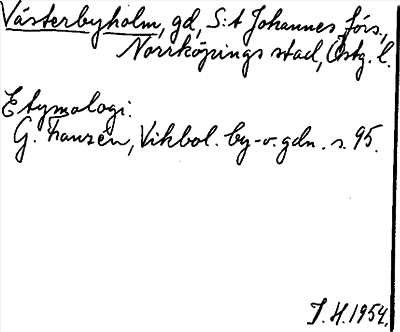 Västerbyholm, gd, S:t Johannes förs.,
Norrköpings stad, Östg. l.
Etymologi.
G. Franzén, Vikbol. by- o. gdn. s. 95.
J. H. 1954.